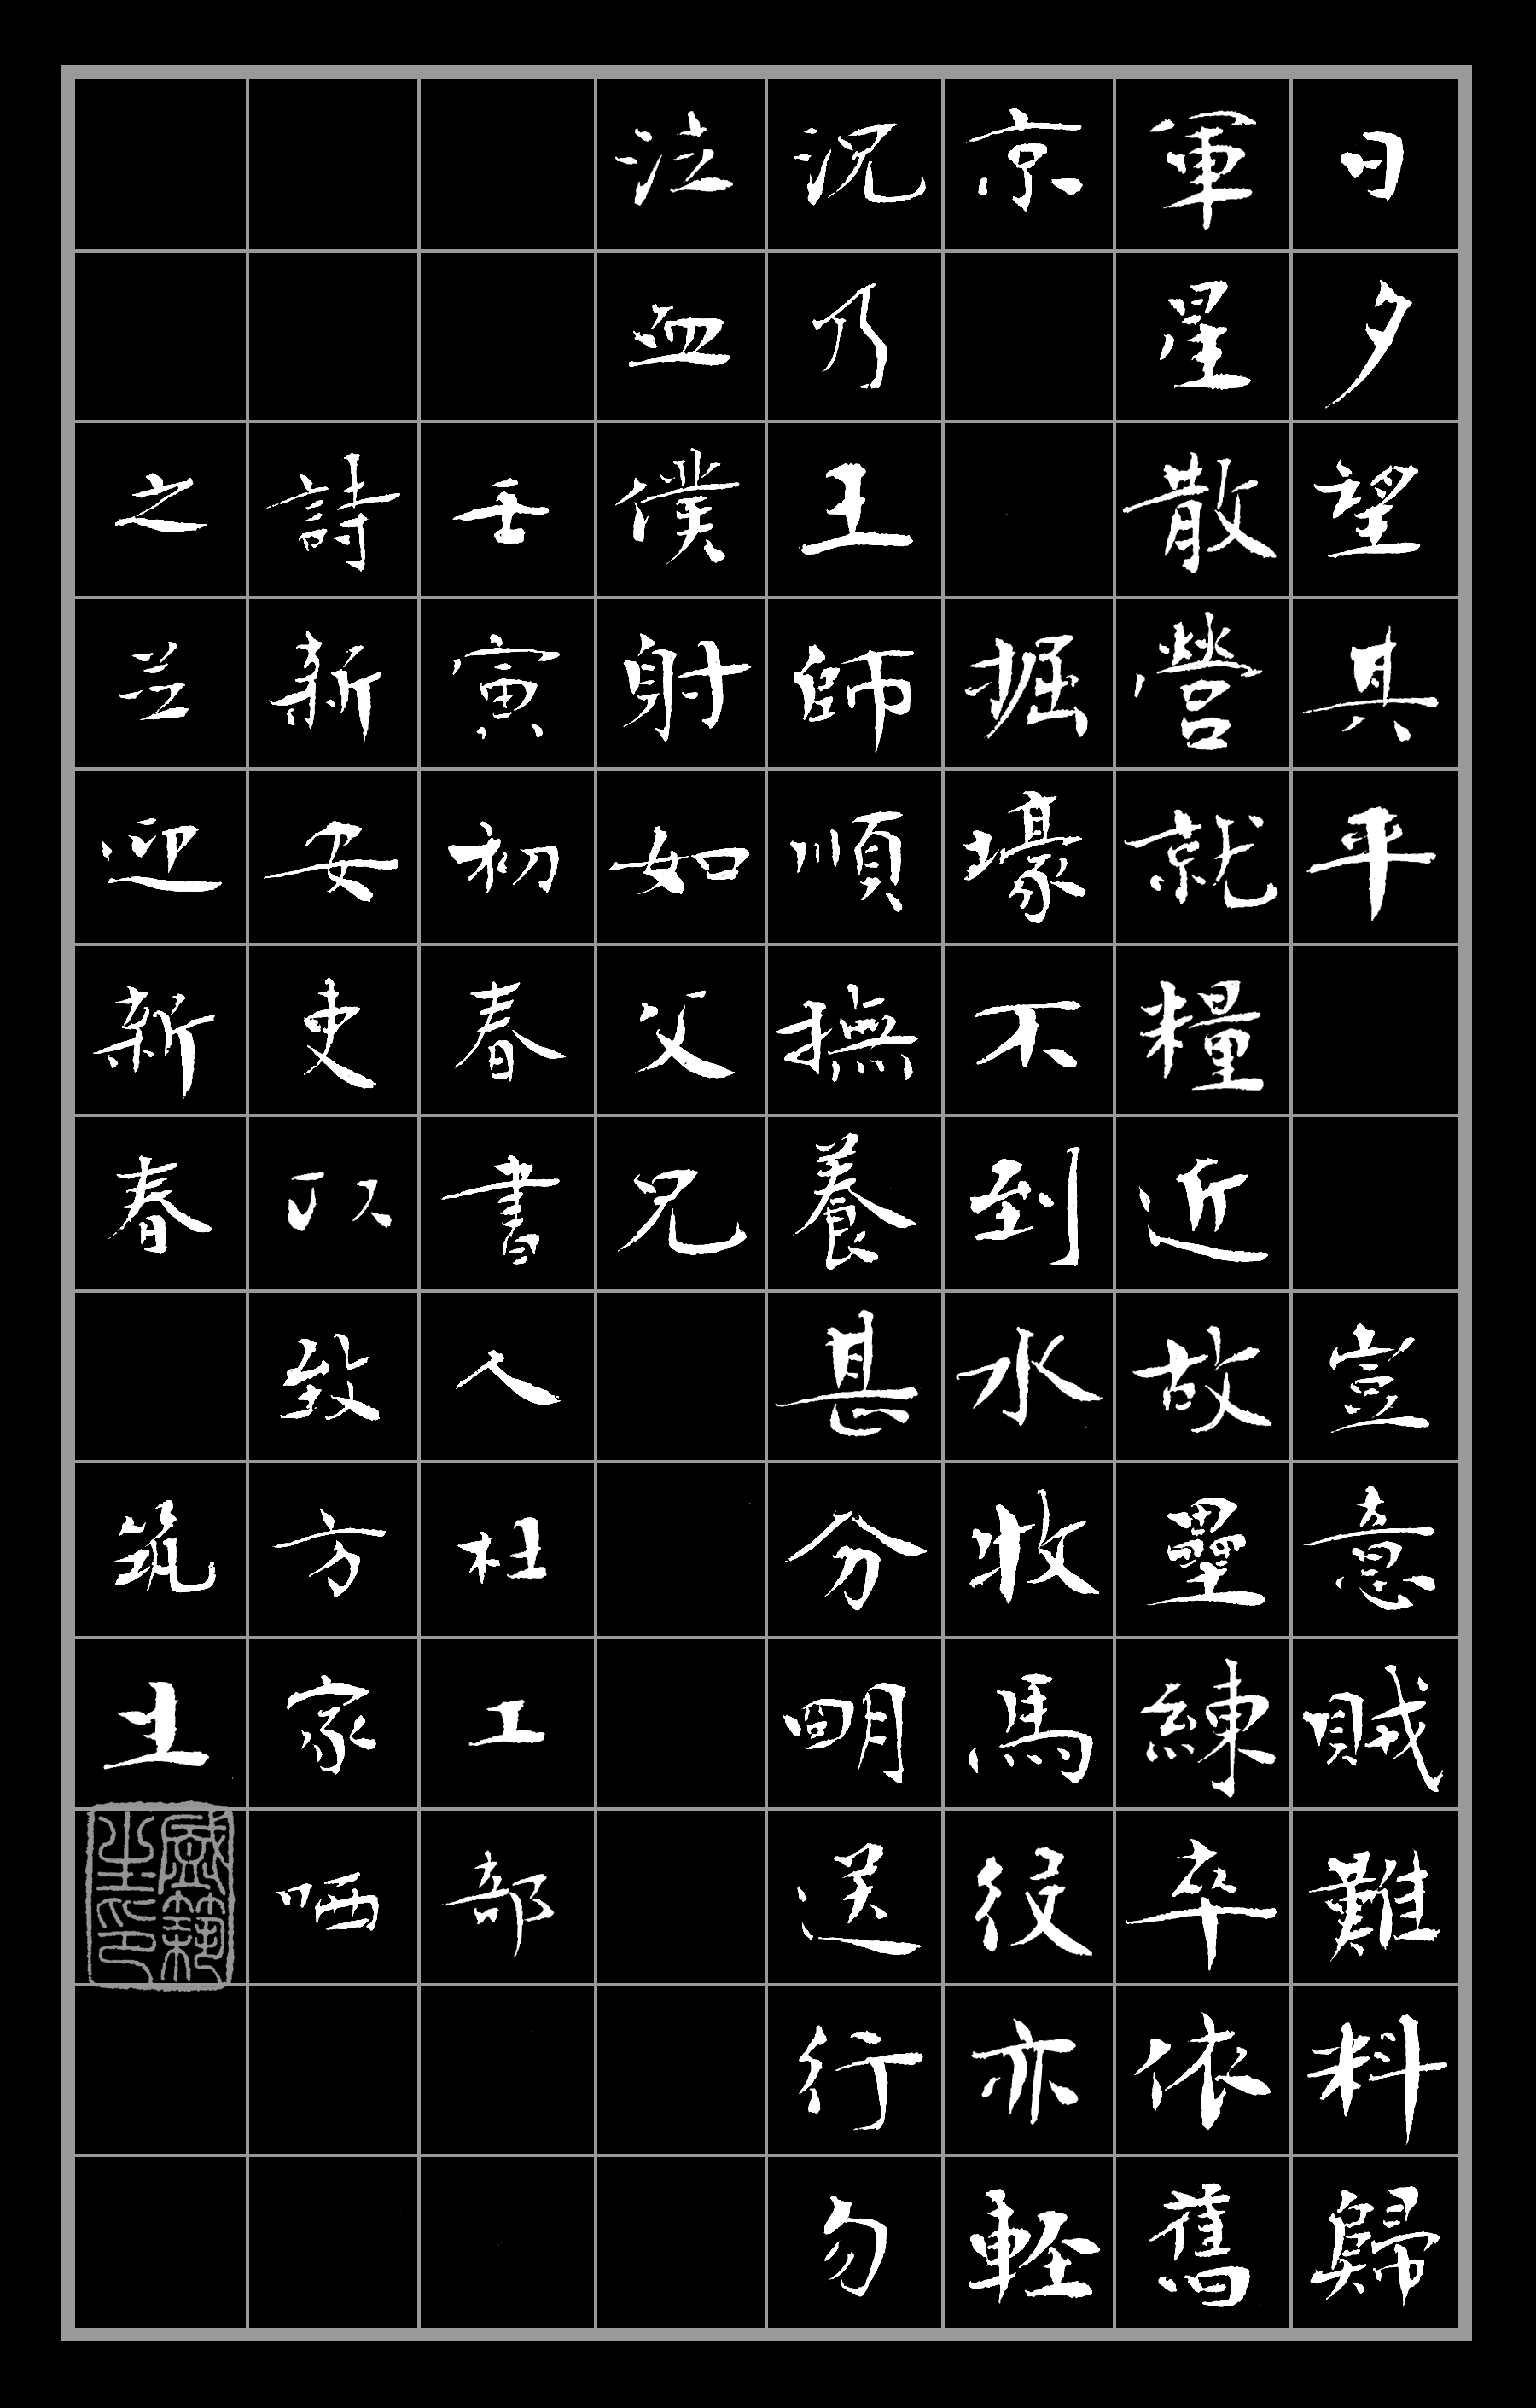 日夕望其平 豈意賊難料歸
軍星散營就糧近故壘練卒依舊
京 掘壕不到水牧馬役亦輕
況乃王師順撫養甚分明送行勿
泣血僕射如父兄
壬寅初春書人杜工部
詩新安吏以致方家哂
之並迎新春 筑生
盛筑生印